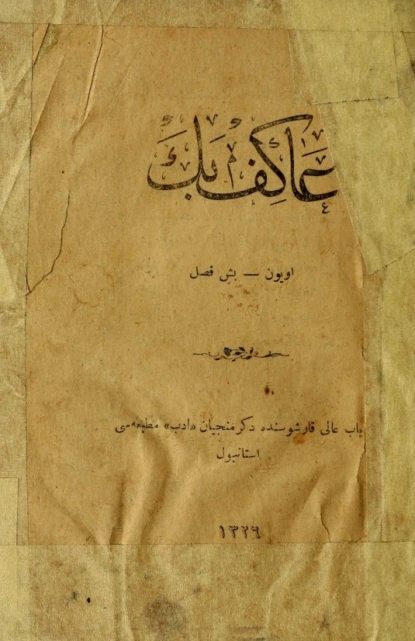 عاكف بك
اويون — بش فصل
باب عالى قارشوسنده دكرمنجيان «ادب» مطبعه‌سى
استانبول
١٣٢٩